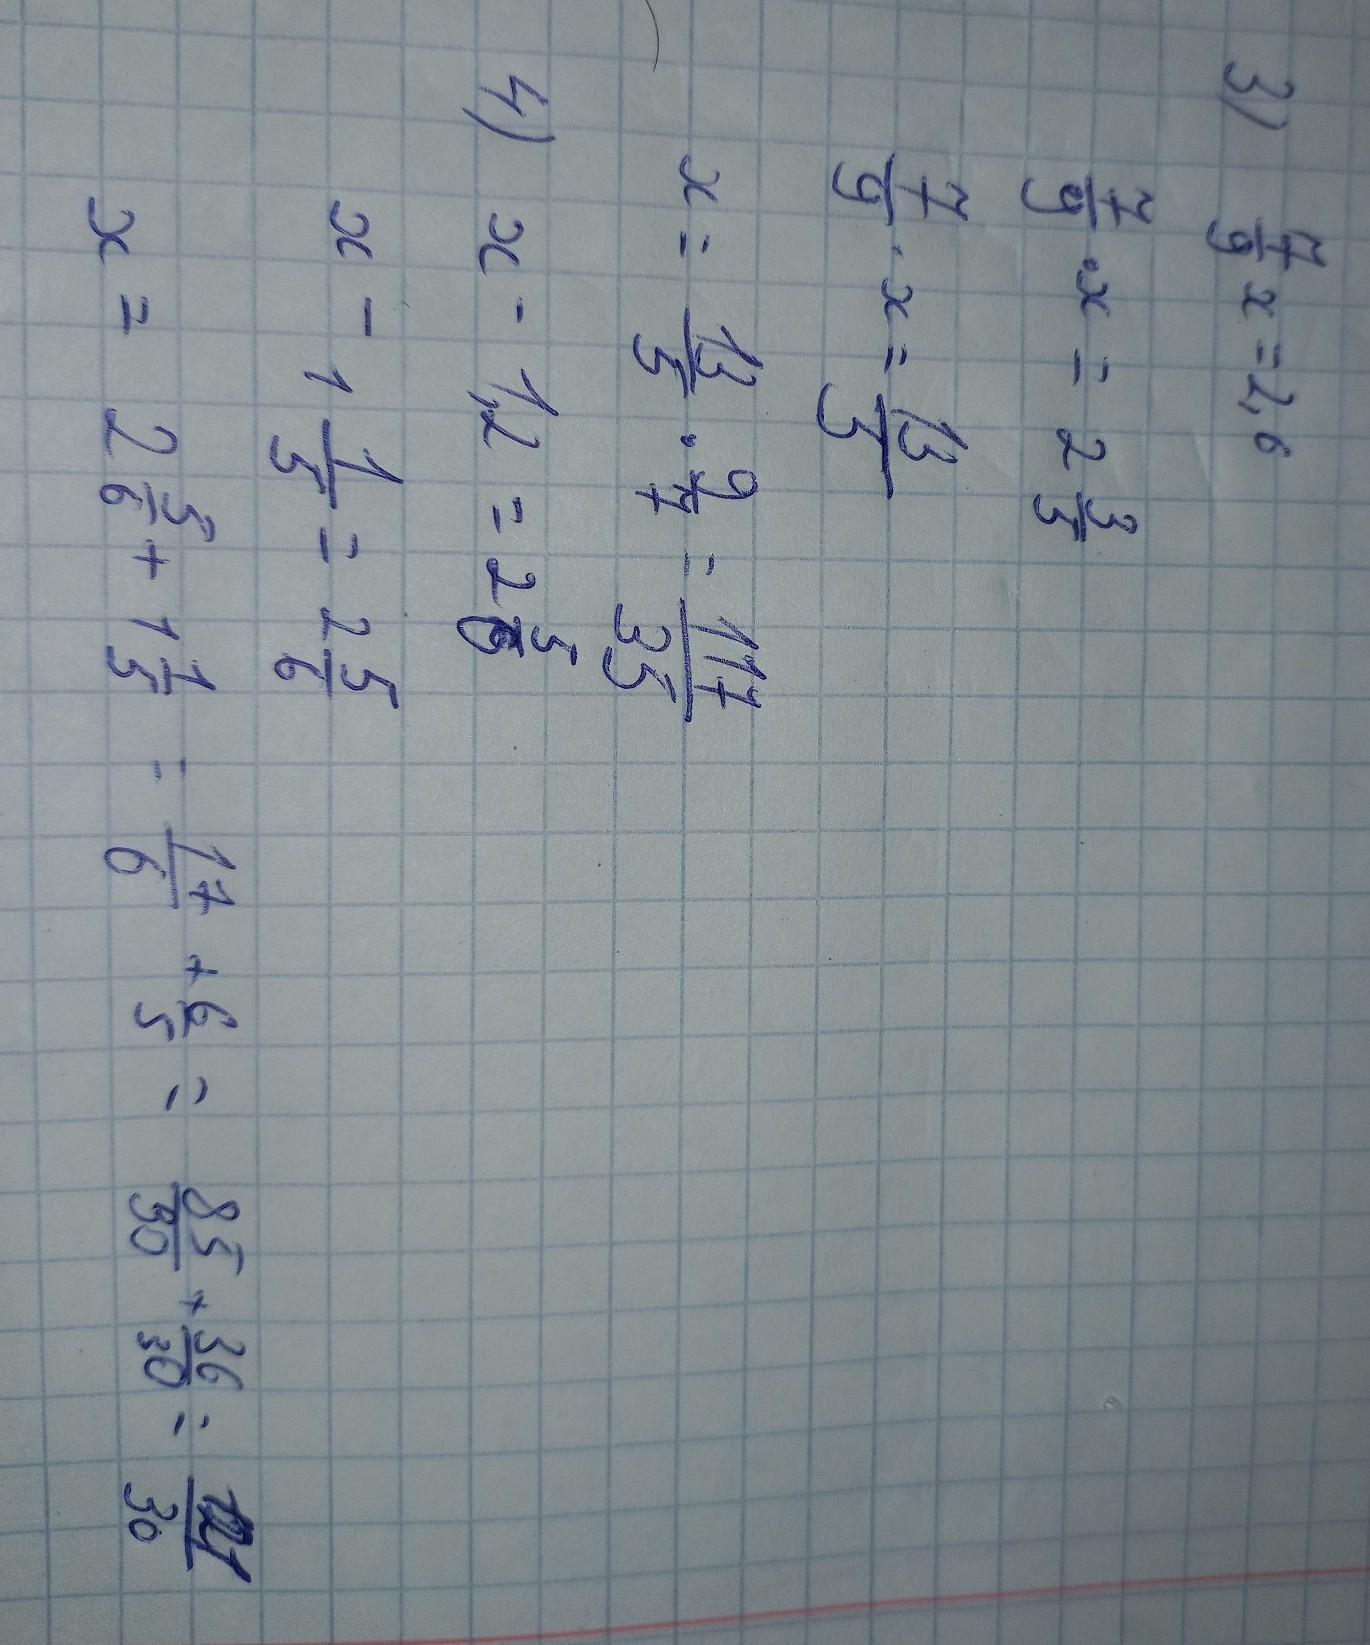 3) 7/9 x = 2,6
7/9 · x = 2 3/5
7/9 · x = 13/5
x = 13/5 · 9/7 = 117/35
4) x - 1,2 = 2 5/6
x - 1 1/5 = 2 5/6
x = 2 5/6 + 1 1/5 = 17/6 + 6/5 = 85/30 + 36/30 = 121/30